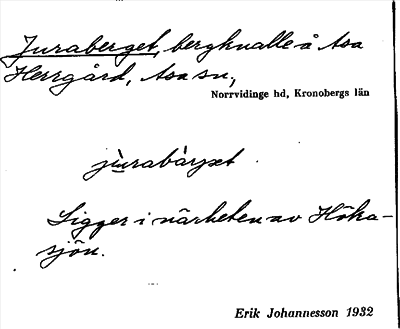 Juraberget, bergknalle å Asa
Herrgård, Asa sn.,
Norrvidinge hd, Kronobergs län
jùrabàrjet
Ligger i närheten av Höka-
sjön.
Erik Johannesson 1932